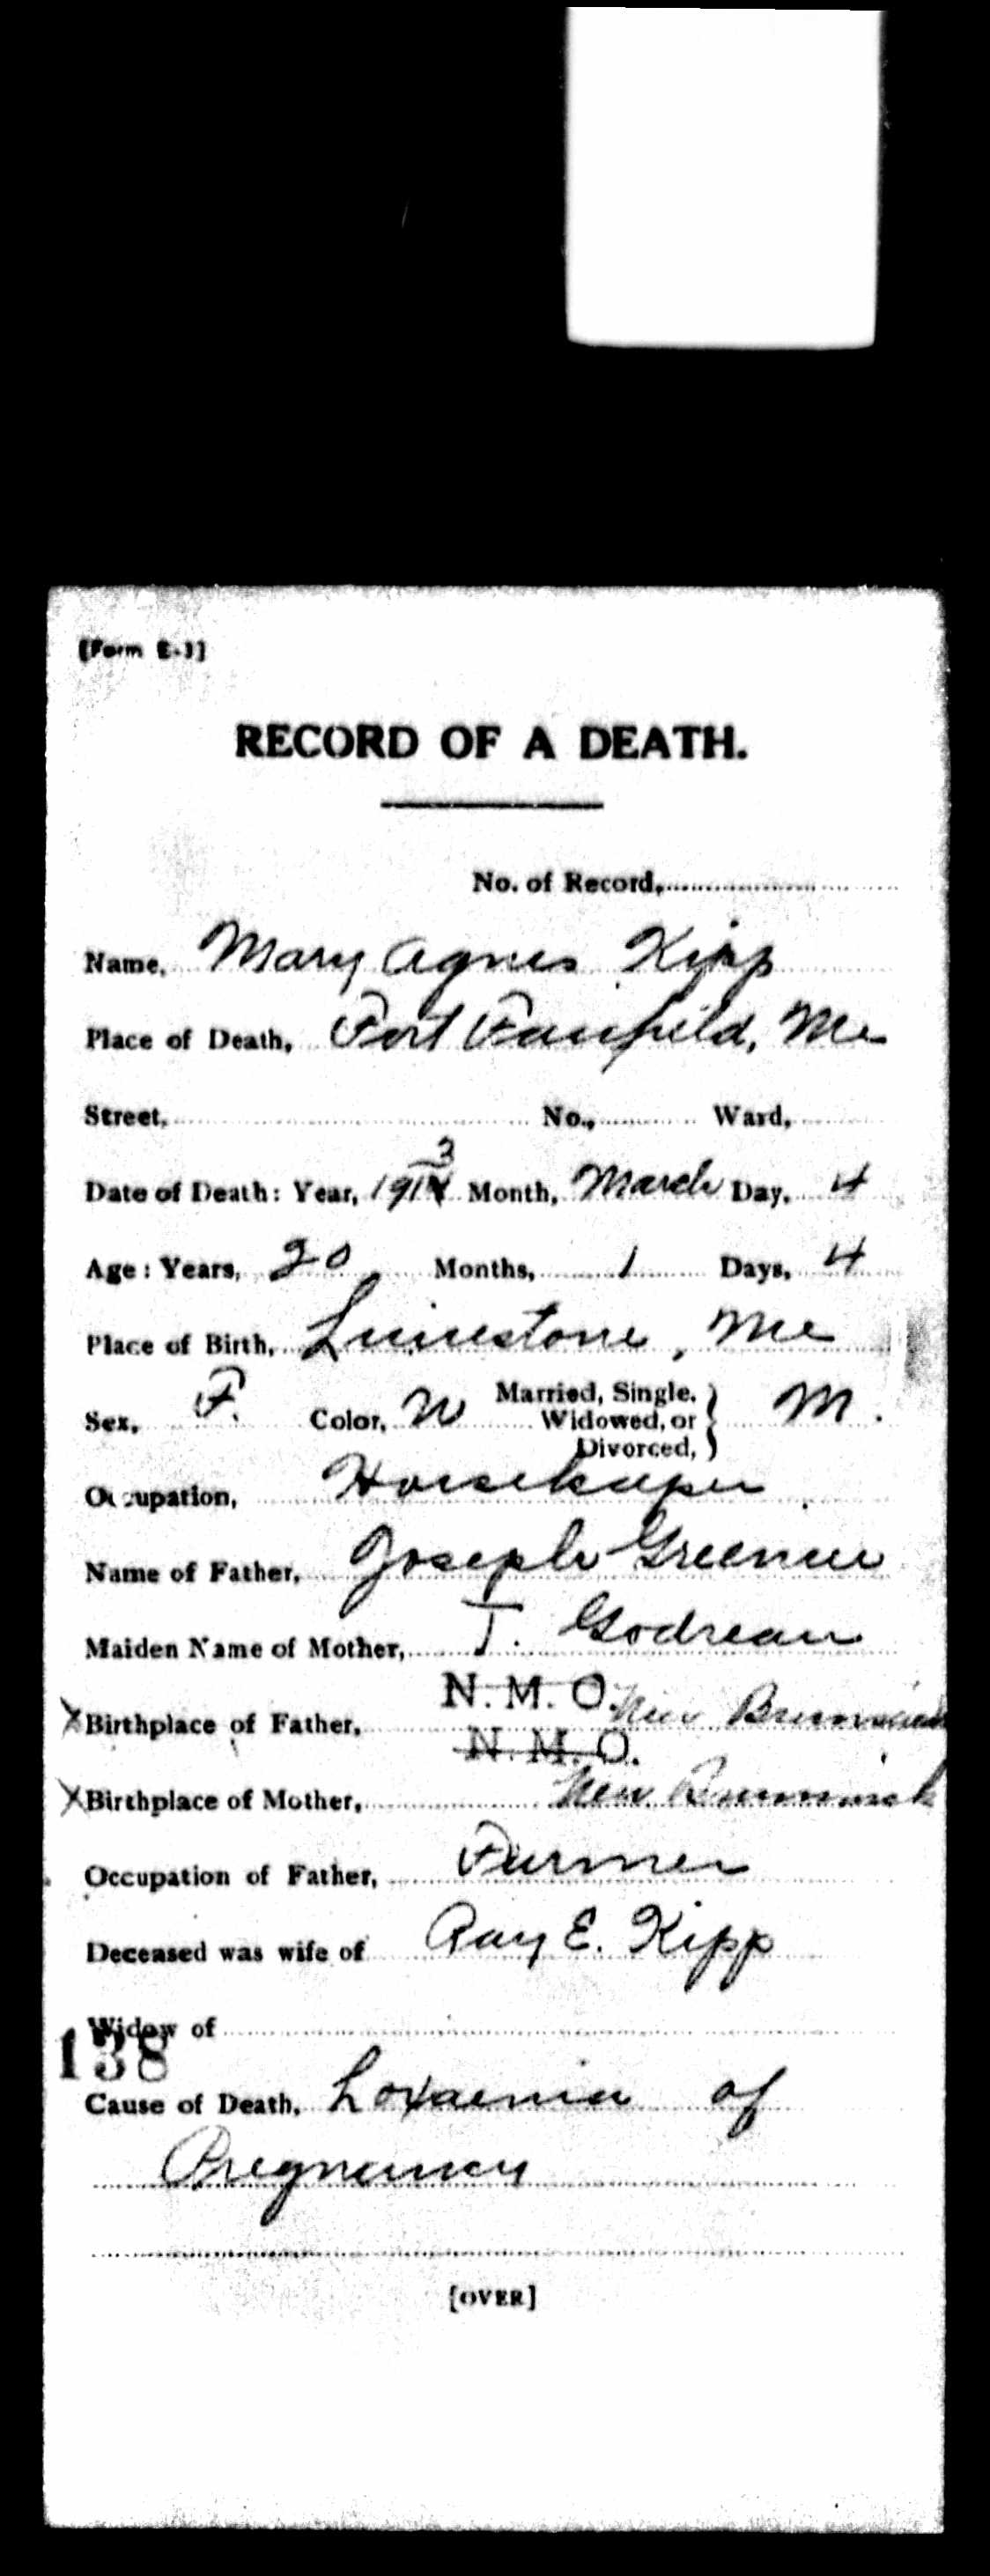 [Form E-1]
RECORD OF A DEATH.
No. of Record,
Name, Mary Agnes Kipp
Place of Death, Fort Fairfield, Me
Street, No., Ward,
3
Date of Death: Year, 1914 Month, March Day, 4
Age: Years, 20 Months, 1 Days, 4
Place of Birth, Limestone, Me
Sex, F. Color, W Married, Single, Widowed, or Divorced, } M.
Occupation, Housekeeper
Name of Father, Joseph
Maiden Name of Mother, T. Godreau
N. M. O.
X Birthplace of Father, New Brunswick
N. M. O.
X Birthplace of Mother, New Brunswick
Occupation of Father, Farmer
Deceased was wife of Ray E. Kipp
Widow of
138
Cause of Death, Toxaemia of
Pregnancy
[OVER]